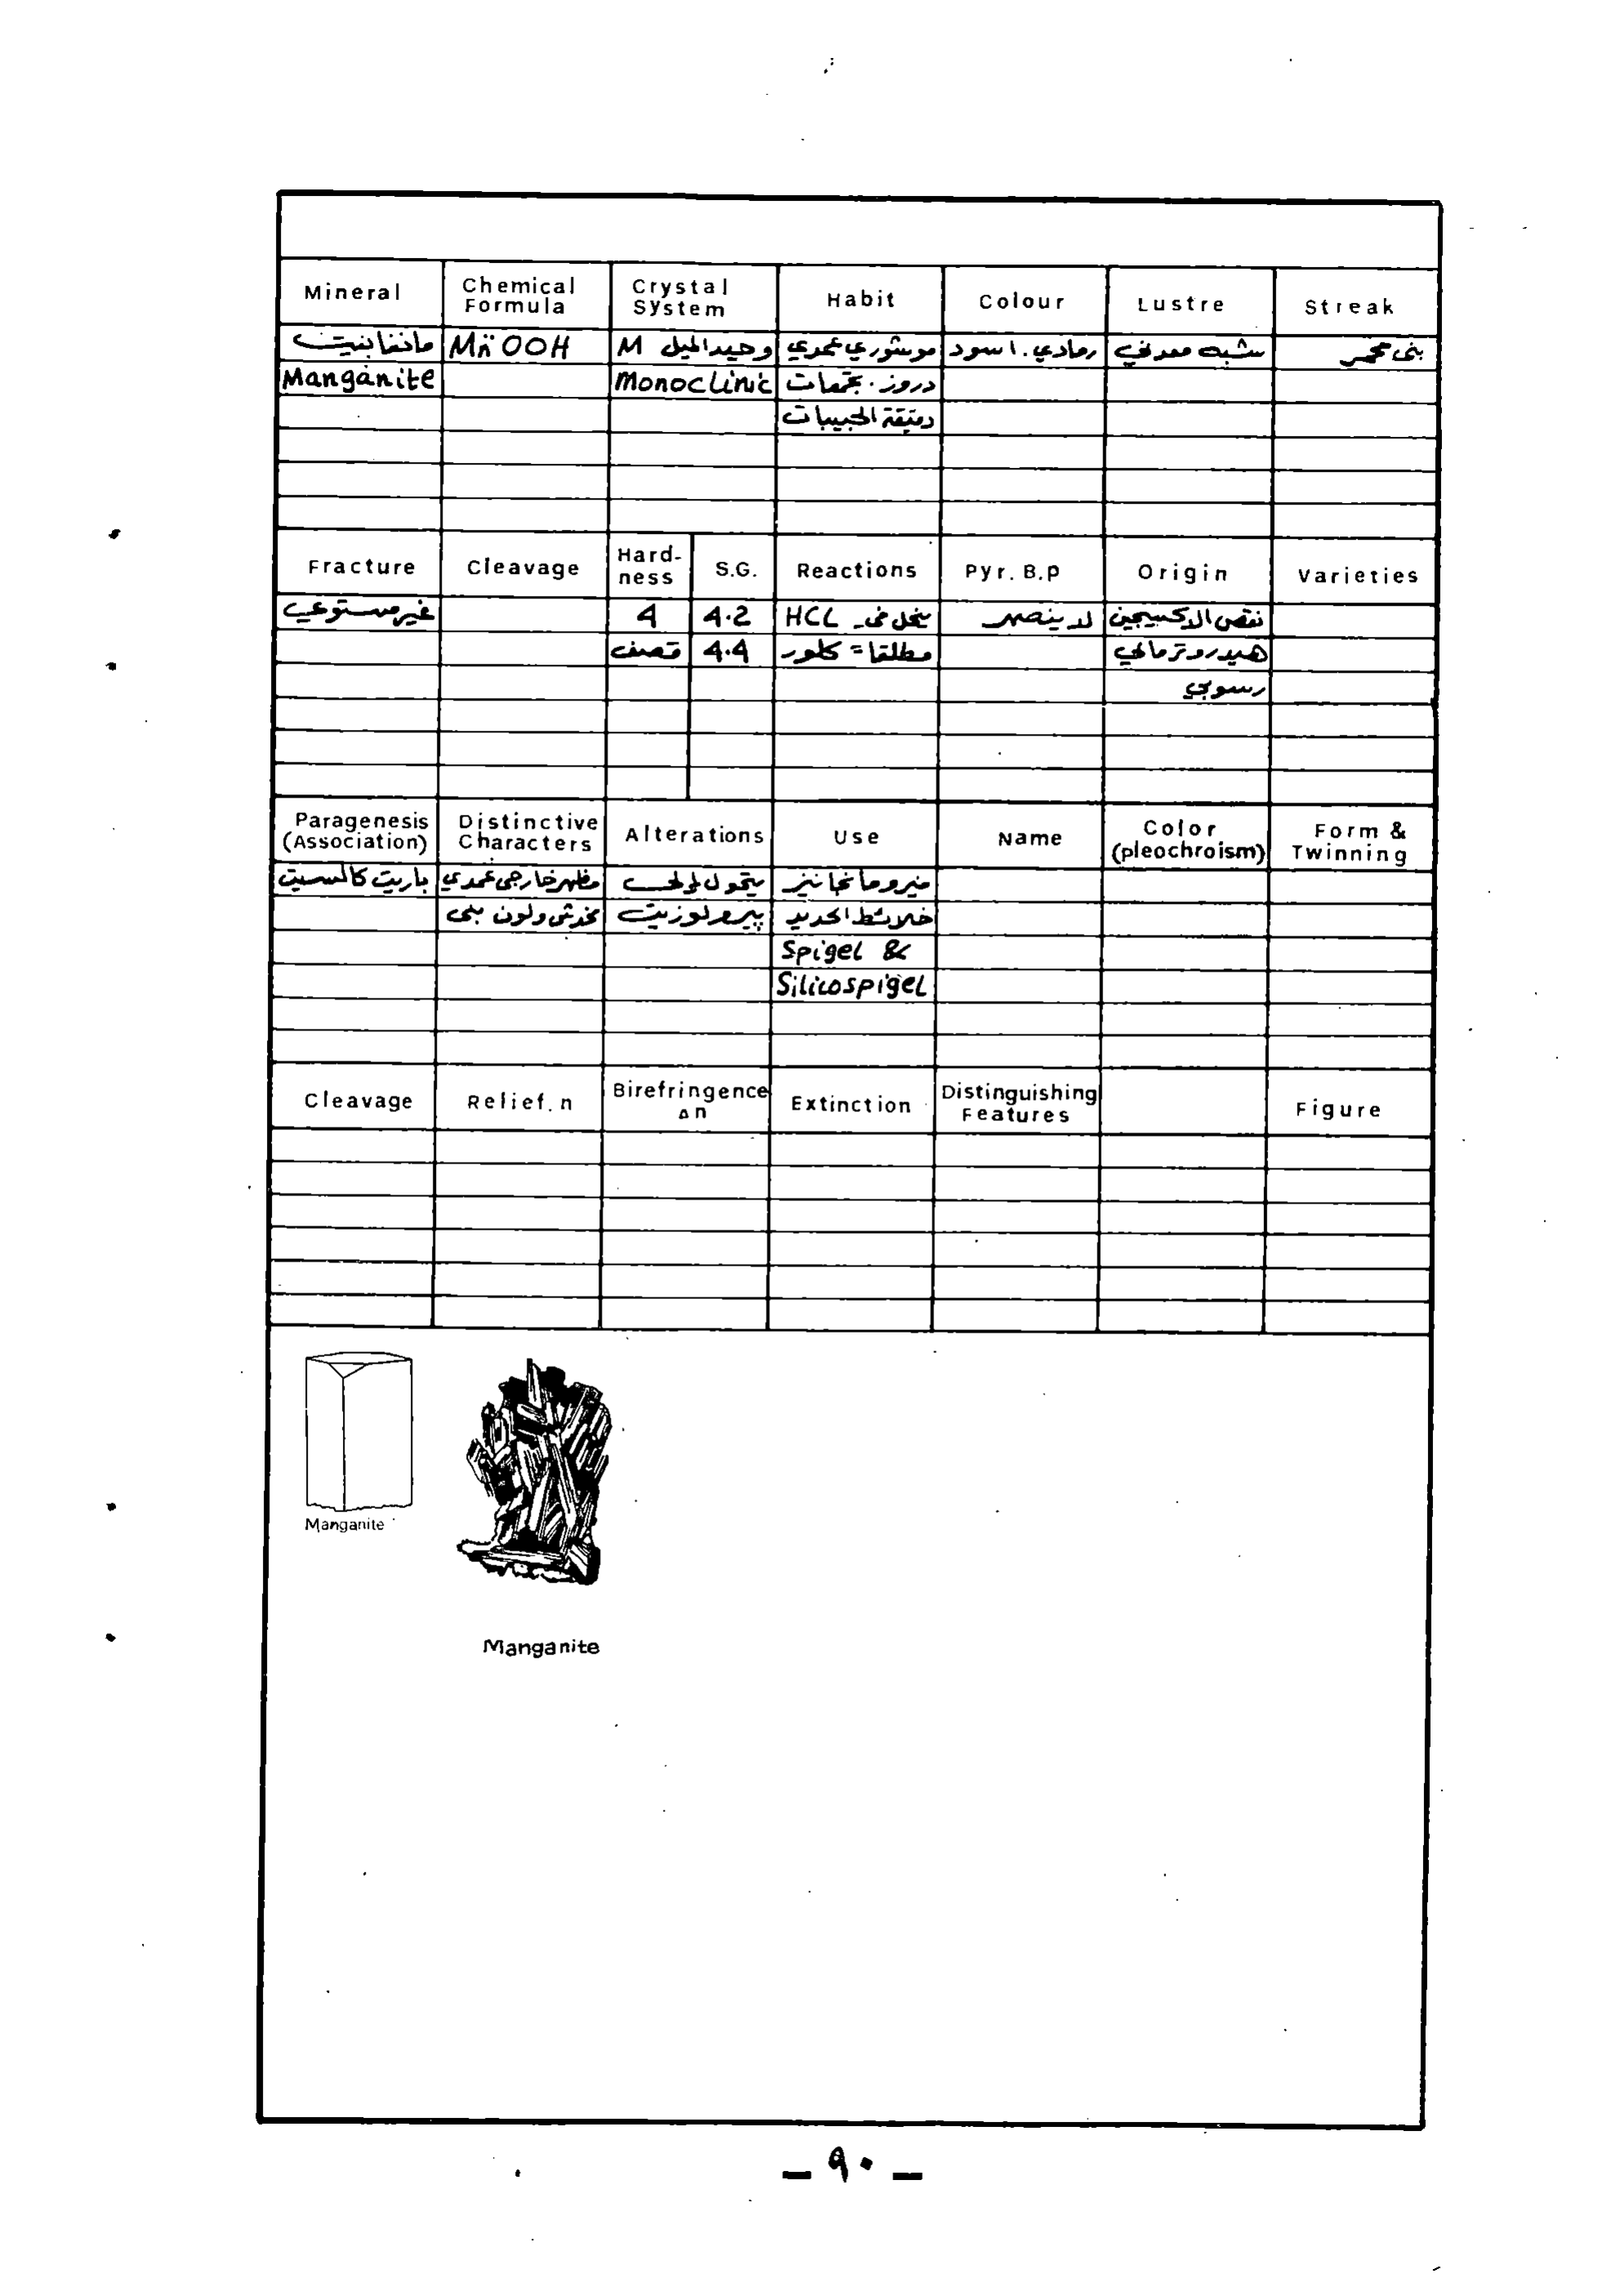 Mineral Chemical Formula Crystal System Habit Colour Lustre Streak
مانغانيت Mn̈OOH وحيد الميل M موشوري عمدي رمادي. اسود شبه معدني بني محمر
Manganite Monoclinic دروز. تجمعات
دقيقة الحبيبات
Fracture Cleavage Hard-ness S.G. Reactions Pyr. B.p Origin Varieties
غير مستوي 4 4.2 ينحل في HCL لا ينصهر نقص الاكسيجين
قصف 4.4 مطلقا= كلور هيدروترمالي
رسوبي
Paragenesis (Association) Distinctive Characters Alterations Use Name Color (pleochroism) Form & Twinning
باريت كالسيت مظهر خارجي عمدي يتحول إلى فيرومانجانيز
مخدشي ولون بني بيرولوزيت خلائط الحديد
Spigel &
Silicospigel
Cleavage Relief. n Birefringence Δn Extinction Distinguishing Features Figure
Manganite
Manganite
_ ٩٠ _